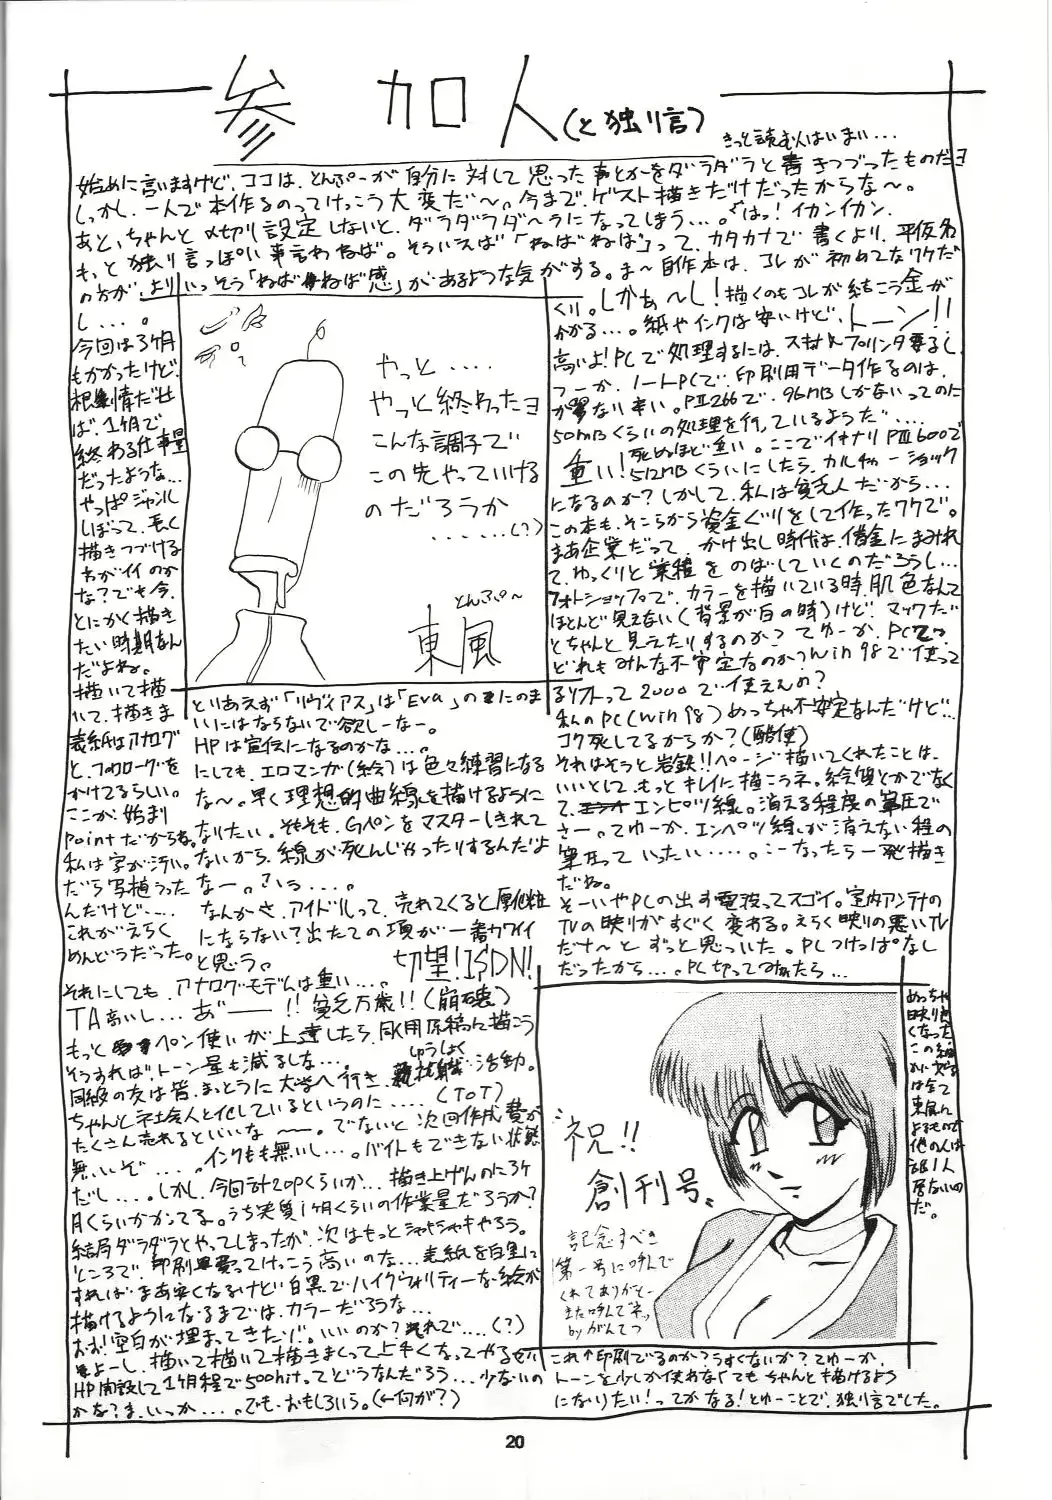 参加人(と独り言)
きっと読む人はいまい...
始めに言いますけど、ココは、とんぷーが自分に対して思った事とかをダラダラと書きつづったものだヨ
しっかし、一人で本作るのってけっこう大変だ〜。今まで、ゲスト描きだけだったからな〜。
あと、ちゃんと〆切り設定しないと、ダラダラダ〜ラになってしまう...。はっ!イカンイカン、
もっと独り言っぽい事言わねば。そういえば「ねばねば」って、カタカナで書くより、平仮名
の方が、よりいっそう「ねばねば感」があるような気がする。ま〜自作本は、コレが初めてなワケだ
し....。
今回は3ヶ月
もかかったけど、
根性だせ
ば、1ヶ月で
終わる仕事量
だったような...
やっぱジャンル
しぼって、長く
描きつづける
方がイイのか
な?でも今、
とにかく描き
たい時期なん
だよね。
描いて描
いて、描きま
表紙はアナログ
と、フォトローグを
かけてるらしい。
ここが、始まり
pointだからね。
私は字が汚い。
だら写植うった
んだけど....
これがえらく
めんどうだった。
やっと....
やっと終わったヨ
こんな調子で
この先やっていける
のだろうか
......(?)
とんぷ〜
東風
とりあえず「リヴァイアス」は「Eva」の二のま
いにはならないで欲しーなー。
HPは宣伝になるのかな...。
にしても、エロマンガ(絵)は色々練習になる
な〜。早く理想的曲線を描けるように
なりたい。そもそも、Gペンをマスターしきれて
ないから、線が死んじゃったりするんだよ
なー。さいう....。
なんかさ、アイドルって、売れてくると厚化粧
にならない?出たての頃が一番カワイイ
と思う。
切望!ISDN!
それにしても、アナログモデムは重い...。
TA高いし...。あ゛ーーー!!貧乏万歳!!(崩壊)
もっとペン使いが上達したら、同人用原稿に描こう
そうすれば、トーン量も減るしな...
同級の友は皆、まっとうに大学へ行き、就職(しゅうしょく)活動。
ちゃんと社会人と化しているというのに....(ToT)
たくさん売れるといいな〜。でないと次回作成費が
無いぞ....。インクも無いし...。バイトもできない状態
だし....。しかし、今回計20pくらいか...描き上げんのに3ヶ
月くらいかかってる。うち実質1ヶ月くらいの作業量だろうか?
結局ダラダラとやってしまったが、次はもっとシャキシャキやろう。
ところで、印刷費ってけっこう高いのな...表紙を白黒に
すれば、まあ安くなるけど白黒でハイクウォリティーな絵が
描けるようになるまでは、カラーだろうな...
おお!空白が埋まってきたゾ。いいのか?それで....(?)
よーし、描いて描いて描きまくって上手くなってやるぜい
HP開設して1ヶ月程で500hit。ってどうなんだろう...少ないの
かな?ま、いっか....。でも、おもしろいう。(←何が?)
くり。しかぁ〜し!描くのもコレが結こう金が
かかる...。紙やインクは安いけど、トーン!!
高いよ!PCで処理するには、スキャナ、プリンタ要るし、
つーか、ノートPCで、印刷用データ作るのは、
かなり辛い。PⅡ266で、96MBしかないってのに
50MBくらいの処理を行っているようだ....
重い!死ぬほど重い。ここでイキナリPⅢ600で
512MBくらいにしたら、カルチャーショック
になるのか?しかして、私は貧乏人だから...
この本も、そこらから資金ぐりをして作ったワケで。
まあ企業だって、かけ出し時代は、借金にまみれ
て、ゆっくりと業積をのばしていくのだろうし...
フォトショップで、カラーを描いている時、肌色なんて
ほとんど見えない(背景が白の時)けど!マックだ
とちゃんと見えたりするのか?てゆーか、PCって
どれもみんな不安定なのか?Win98で使って
るソフトって2000で使えんの?
私のPC(win98)めっちゃ不安定なんだけど...
コク死してるからか?(酷使)
それはそうと岩鉄!!ページ描いてくれたことは、
いいとして、もっとキレイに描こうネ。絵侯とかでなく
て、エンピツ線。消える程度の筆圧で
さー。てゆーか、エンペツ線が消えない程の
筆圧っていったい....。こーなったら一発描き
だね。
そーいやPCの出す電波ってスゴイ。室内アンテナの
TVの映りがすぐく変わる。えらく映りの悪いTV
だナ〜とずっと思っていた。PCつけっぱなし
だったから...。PC切ってつけたら...
めっちゃ
映り良
くなった
この細
かい文字
は全て
東風に
よるもので
他の人は
誰1人
居ないの
だ。
祝!!
創刊号。
記念すべき
第一号に呼んで
くれてありがと〜
また呼んでネ。
byがんてつ
これ↑印刷でるのか?うすくないか?てゆーか、
トーンを少しか使わなくてもちゃんと描けるよう
になりたい!ってかなる!とゆーことで、独り言でした。
20